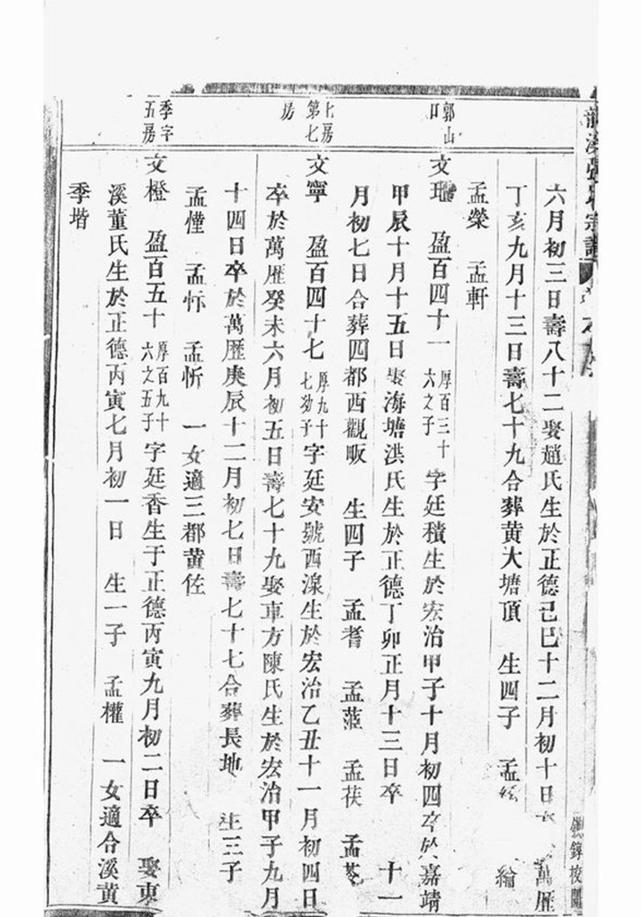 氏宗譜
六月初三日壽八十二娶趙氏生於正德己巳十二月初十日 萬厯
丁亥九月十三日壽七十九合葬黃大塘頂 生四子 孟 繪
孟榮 孟軒
郭山
文 盈百四十一 厚百三十六之子 字廷積生於宏治甲子十月初四卒於嘉靖
甲辰十月十五日娶海塘洪氏生於正德丁卯正月十三日卒 十一
月初七日合葬四都西觀畈 生四子 孟耆 孟 孟茯 孟苓
七房第七房
文寧 盈百四十七 厚九十七幼子 字廷安號西湶生於宏治乙丑十一月初四日
卒於萬厯癸未六月初五日壽七十九娶車方陳氏生於宏治甲子九月
十四日卒於萬厯庚辰十二月初七日壽七十七合葬長地 生三子
孟憧 孟 孟忻 一女適三都黃佐
季字五房
文橙 盈百五十 厚百九十六之五子 字廷香生于正德丙寅九月初二日卒 娶東
溪董氏生於正德丙寅七月初一日 生一子 孟權 一女適合溪黃
季堦